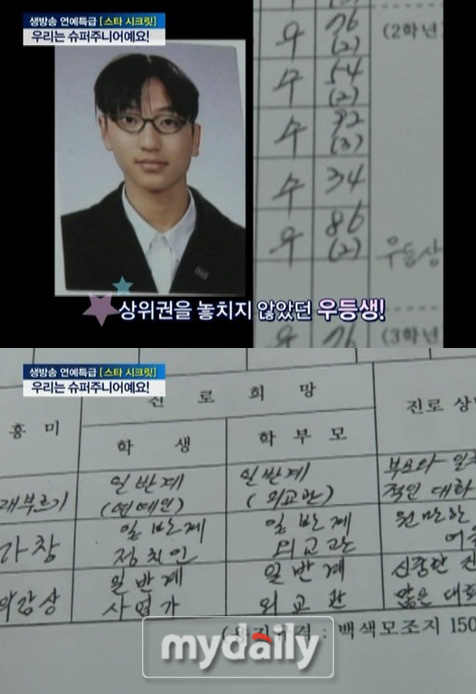 생방송 연예특급 [스타 시크릿]
우리는 슈퍼주니어예요!
우 76 (2학년
(2)
수 54
(2)
수 92
(3)
수 34
우 86
(2) 우등상
상위권을 놓치지 않았던 우등생!
우 76 (3학년
생방송 연예특급 [스타 시크릿]
우리는 슈퍼주니어예요!
진 로 희 망
흥 미 학 생 학 부 모 진로 상
일반계 일반계
래부르기 (연예인) (외교관) 적인 대화
일반계 일반계 원만한
가창 정치인 외교관
일반계 일반계 신중한
악감상 사업가 외교관 많은 대화
: 백색모조지 150
mydaily